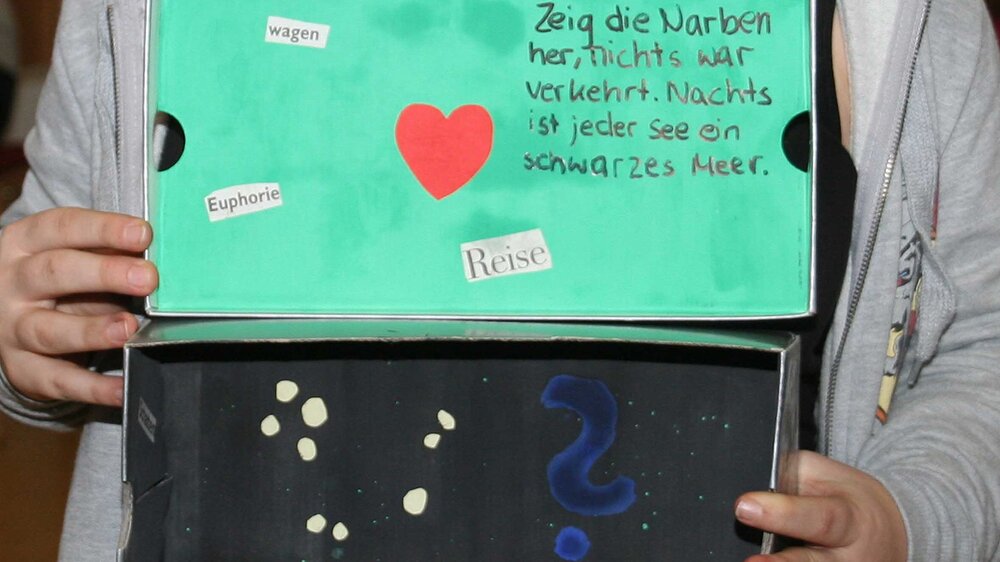 wagen
Zeig die Narben
her, nichts war
verkehrt. Nachts
ist jeder see ein
schwarzes Meer.
Euphorie
Reise